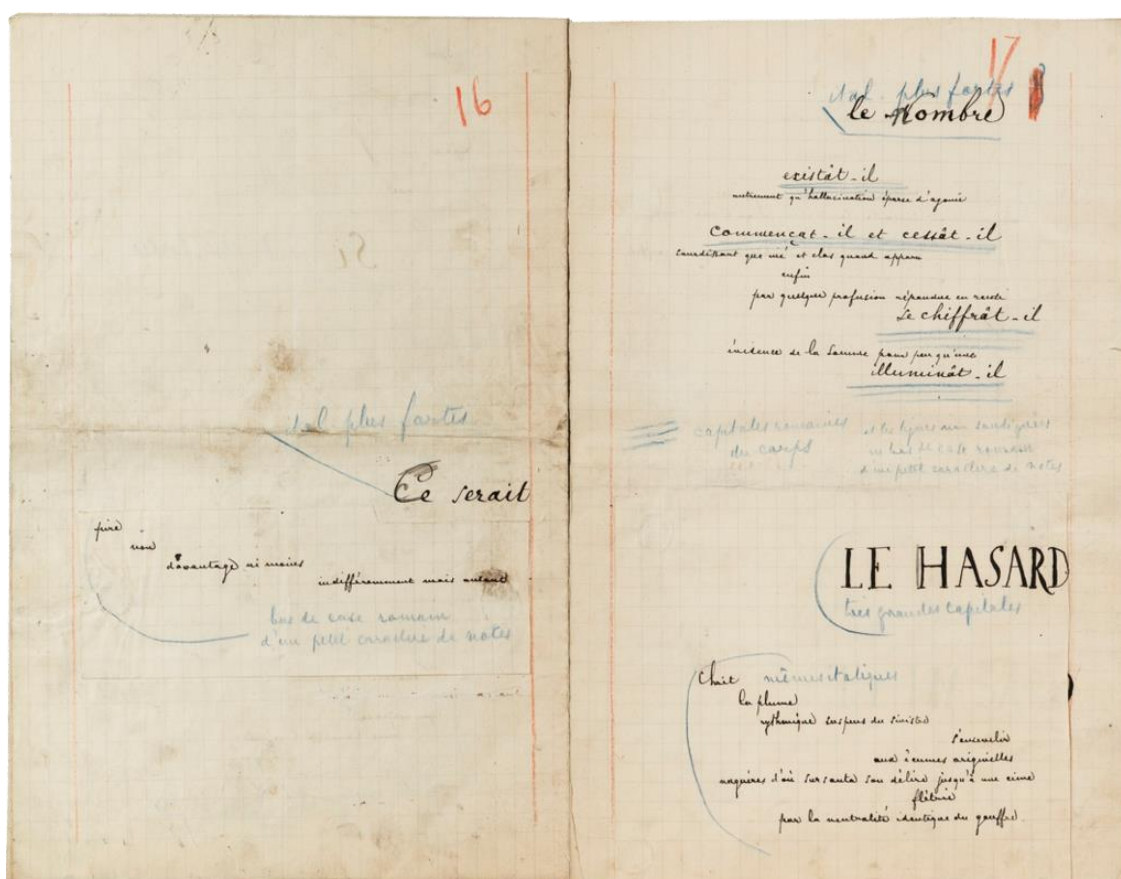 16
ital. plus fortes
Ce serait
pire
non
davantage ni moins
indifféremment mais autant
bas de case romain
d'un petit caractère de notes
17
ital. plus fortes
le Nombre
existât-il
autrement qu'hallucination éparse d'agonie
commençât-il et cessât-il
sourdissant que nié et clos quand apparu
enfin
par quelque profusion répandue en rareté
se chiffrât-il
évidence de la somme pour peu qu'une
illuminât-il
capitales romaines
du corps
et les lignes non soulignées
en bas de case romain
d'un petit caractère de notes
LE HASARD
très grandes capitales
Choit mêmes italiques
la plume
rythmique suspens du sinistre
s'ensevelir
aux écumes originelles
naguères d'où sursauta son délire jusqu'à une cime
flétrie
par la neutralité identique du gouffre